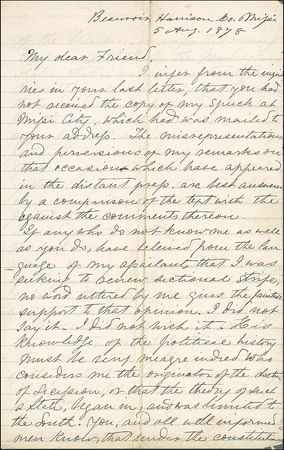 Beauvoir Harrison Co. Missi
5 Aug. 1878
My dear Friend,
I infer from the inqui
ries in your last letter, that you had
not received the copy of my Speech at
Missi City, which had was mailed to
your address. The misrepresentations
and perversions of my remarks on
that occasion which have appeared
in the distant press, are best answered
by a comparison of the text with the
against the comments thereon.
If any who do not know me as well
as you do, have beleived from the lan
guage of my assailants that I was
seeking to renew sectional strife,
no word uttered by me gives the faintest
support to that opinion. I did not
say it - I did not wish it - His
knowledge of the political history
must be very meagre indeed who
considers me the originator of the doctrine
of Secession, or that the theory of
state, began in, and was limited to
the South. You, and all well informed
men know, that under the constitution